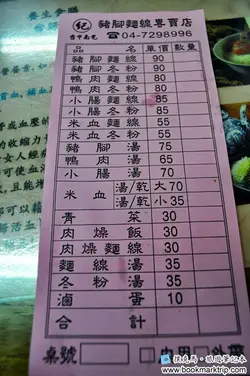 紀
台中南屯
豬腳麵線專賣店
☎04-7298996
品名 單價 數量
豬腳麵線 90
豬腳冬粉 90
鴨肉麵線 80
鴨肉冬粉 80
小腸麵線 65
小腸冬粉 65
米血麵線 55
米血冬粉 55
豬腳湯 75
鴨肉湯 70
小腸湯 60
米血湯/乾 大70
米血湯/乾 小35
青菜 30
肉燥飯 30
肉燥麵線 30
麵線湯 35
冬粉湯 35
滷蛋 10
合計
桌號 □內用 □外帶
www.bookmarktrip.com